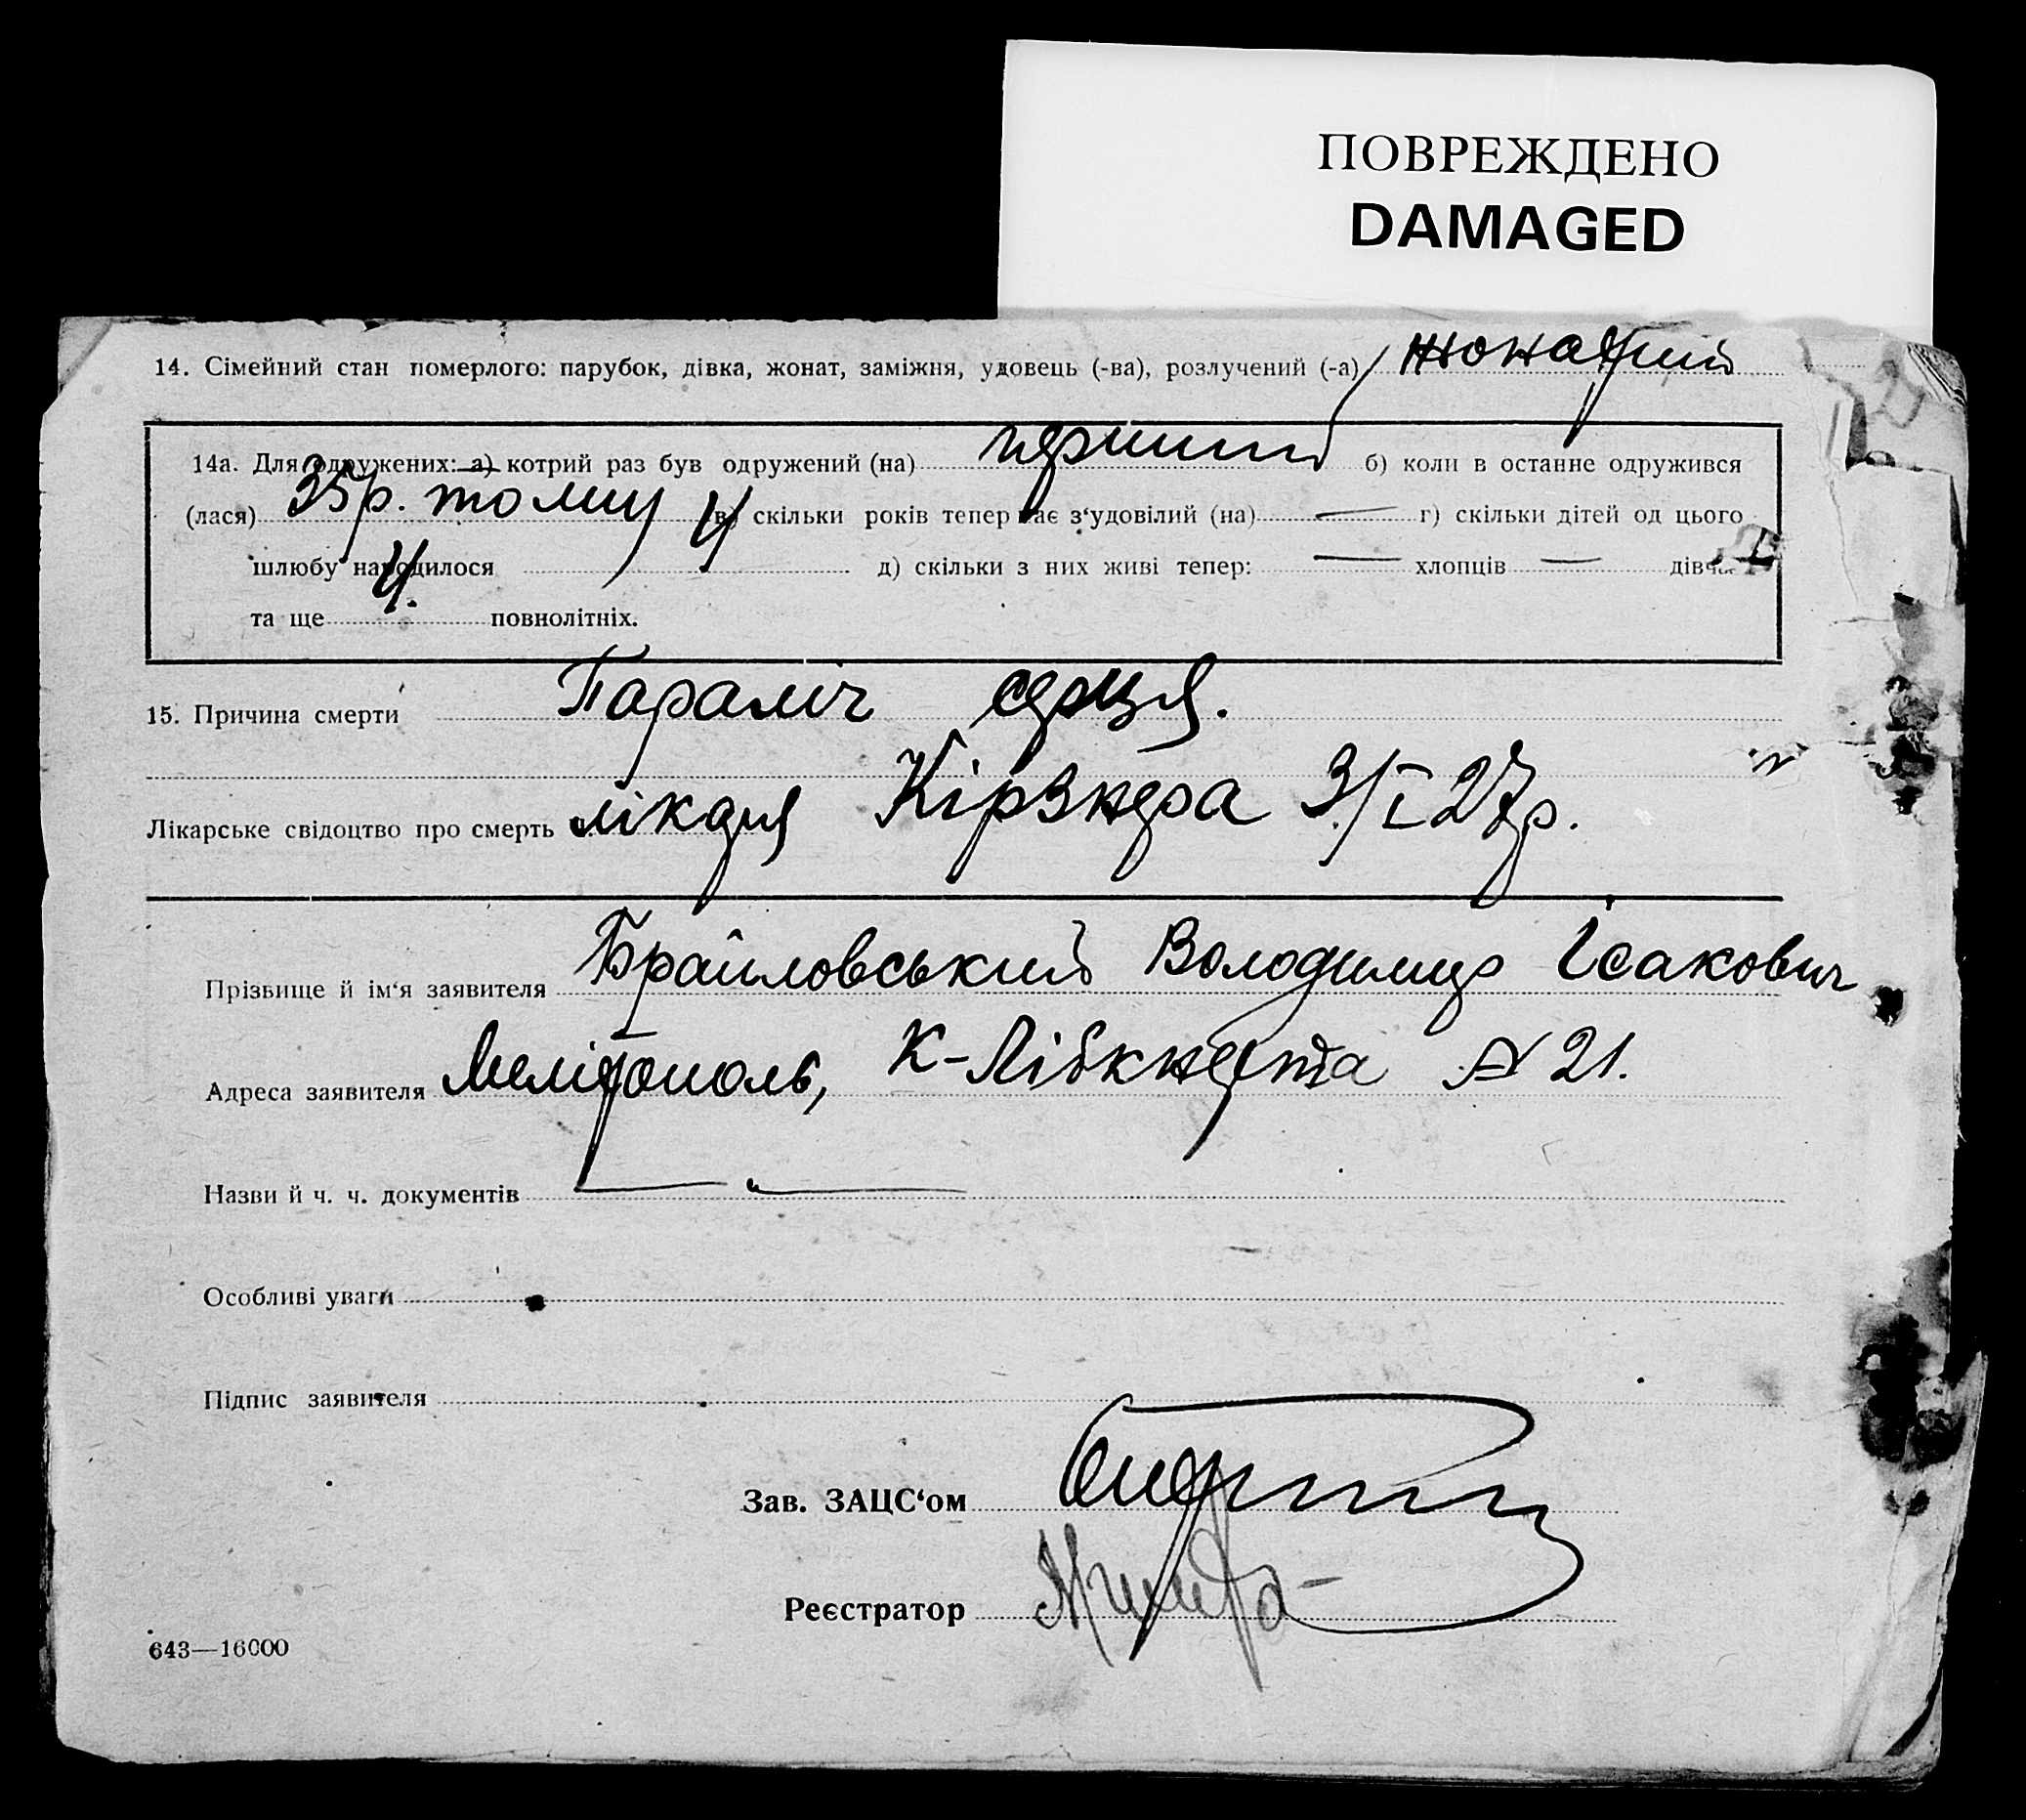 ПОВРЕЖДЕНО
DAMAGED
14. Сімейний стан померлого: парубок, дівка, жонат, заміжня, удовець (-ва), розлучений (-а) жонатий
14а. Для одружених: а) котрий раз був одружений (на) перший б) коли в останнє одружився
(лася) 35 р. тому в) скільки років тепер має з‘удовілий (на) — г) скільки дітей од цього
шлюбу народилося 4 д) скільки з них живі тепер: — хлопців — дівчат
та ще 4. повнолітніх.
15. Причина смерти Параліч серця.
Лікарське свідоцтво про смерть лікаря Кірзнера 3/I 27р.
Прізвище й ім‘я заявителя Браиловський Володимир Ісакович
Адреса заявителя Мелітополь, К-Лібкнехта № 21.
Назви й ч. ч. документів — „ —
Особливі уваги
Підпис заявителя
Зав. ЗАЦС‘ом
Реєстратор
643—16000